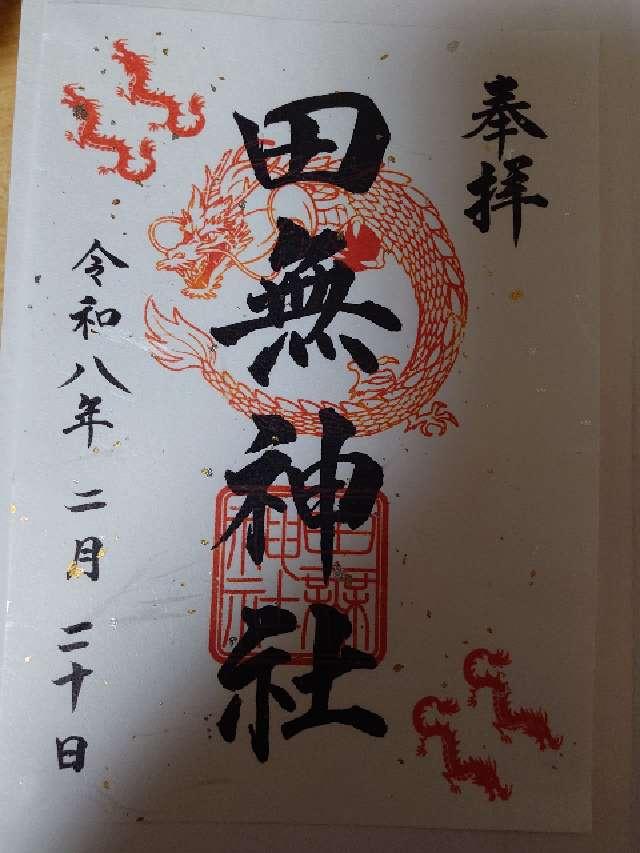 奉拝
田無神社
令和八年二月二十日
田無神社